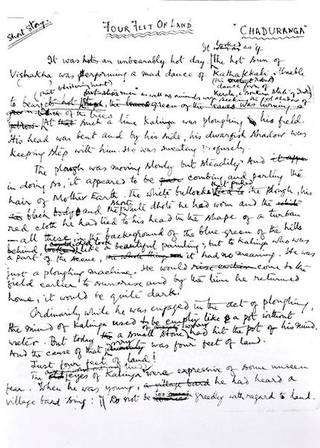 Short Story.
FOUR FEET OF LAND
"CHADURANGA"
It was an unbearably hot day. The hot sun of
Vishakha was performing a mad dance of Kathakkali. Unable
to bear
of the trees
At such a time Kalinga was ploughing his field.
His head was bent and by his side, his dwarfish shadow was
keeping step with him. He was sweating profusely.
The plough was moving slowly but steadily. And
in doing so, it appeared to be combing and parting the
hair of Mother Earth. The white bullocks the plough, his
black body and the white dhoti he had worn and the
red cloth he had tied to his head in the shape of a turban
— all these background of the blue green of the hills
behind like a beautiful painting; but to Kalinga who was
a part of the scene, it had no meaning. He was
just a ploughing machine. He would come to the
field earlier to sunrise and by the time he returned
home, it would be quite dark.
Ordinarily while he was engaged in the act of ploughing,
the mind of Kalinga used to be empty like a pot without
water. But today a small stone had hit the pot of his mind.
And the cause of that was four feet of land.
Just four feet of land!
The eyes of Kalinga were expressive of some unseen
fear. When he was young, he had heard a
village bard sing: Do not be greedy with regard to land.